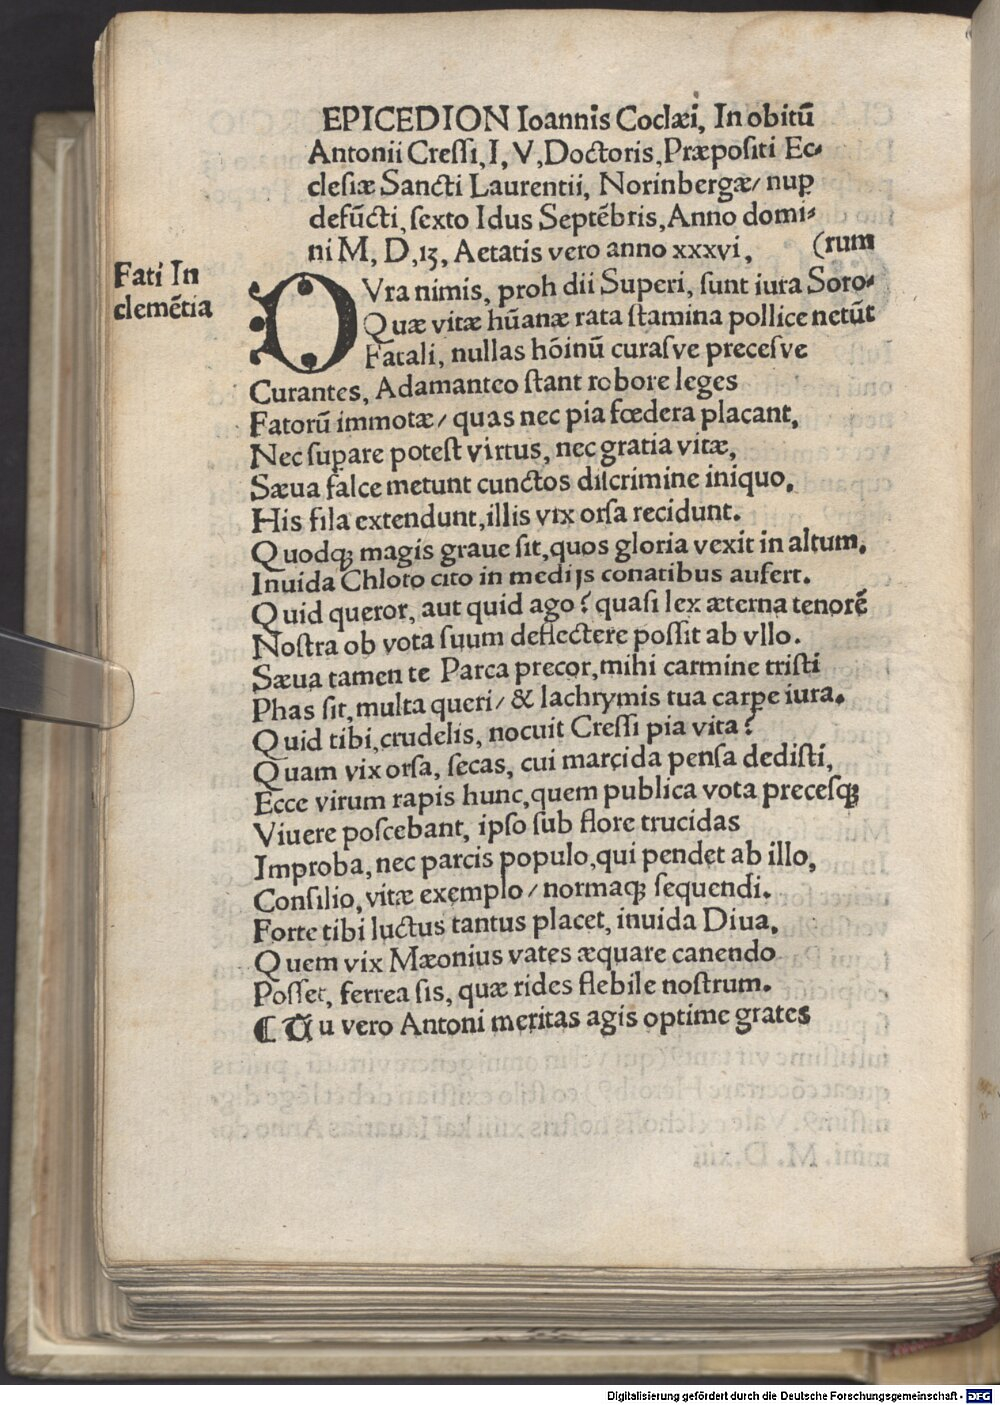 EPICEDION Ioannis Coclæi, In obitū
Antonii Cressi, I, V, Doctoris, Præpositi Ec⸗
clesiæ Sancti Laurentii, Norinbergæ/ nuꝑ
defūcti, sexto Idus Septēbris, Anno domi⸗
ni M, D, 13, Aetatis vero anno xxxvi,
(rum
Fati In
clemētia
DVra nimis, proh dii Superi, sunt iura Soro⸗
Quæ vitæ hūanæ rata stamina pollice netūt
Fatali, nullas hōinū curasve precesve
Curantes, Adamanteo stant robore leges
Fatorū immotæ/ quas nec pia fœdera placant,
Nec suꝑare potest virtus, nec gratia vitæ,
Sæua falce metunt cunctos discrimine iniquo.
His fila extendunt, illis vix orsa recidunt.
Quodqꝫ magis graue sit, quos gloria vexit in altum,
Inuida Chloto cito in medijs conatibus aufert.
Quid queror, aut quid ago? quasi lex æterna tenorē
Nostra ob vota suum deflectere possit ab vllo.
Sæua tamen te Parca precor, mihi carmine tristi
Phas sit, multa queri/ & lachrymis tua carpe iura.
Quid tibi, crudelis, nocuit Cressi pia vita?
Quam vix orsa, secas, cui marcida pensa dedisti,
Ecce virum rapis hunc, quem publica vota precesqꝫ
Viuere poscebant, ipso sub flore trucidas
Improba, nec parcis populo, qui pendet ab illo,
Consilio, vitæ exemplo/ normaqꝫ sequendi.
Forte tibi luctus tantus placet, inuida Diua,
Quem vix Mæonius vates æquare canendo
Posset, ferrea sis, quæ rides flebile nostrum.
¶ Tu vero Antoni meritas agis optime grates
Digitalisierung gefördert durch die Deutsche Forschungsgemeinschaft - DFG